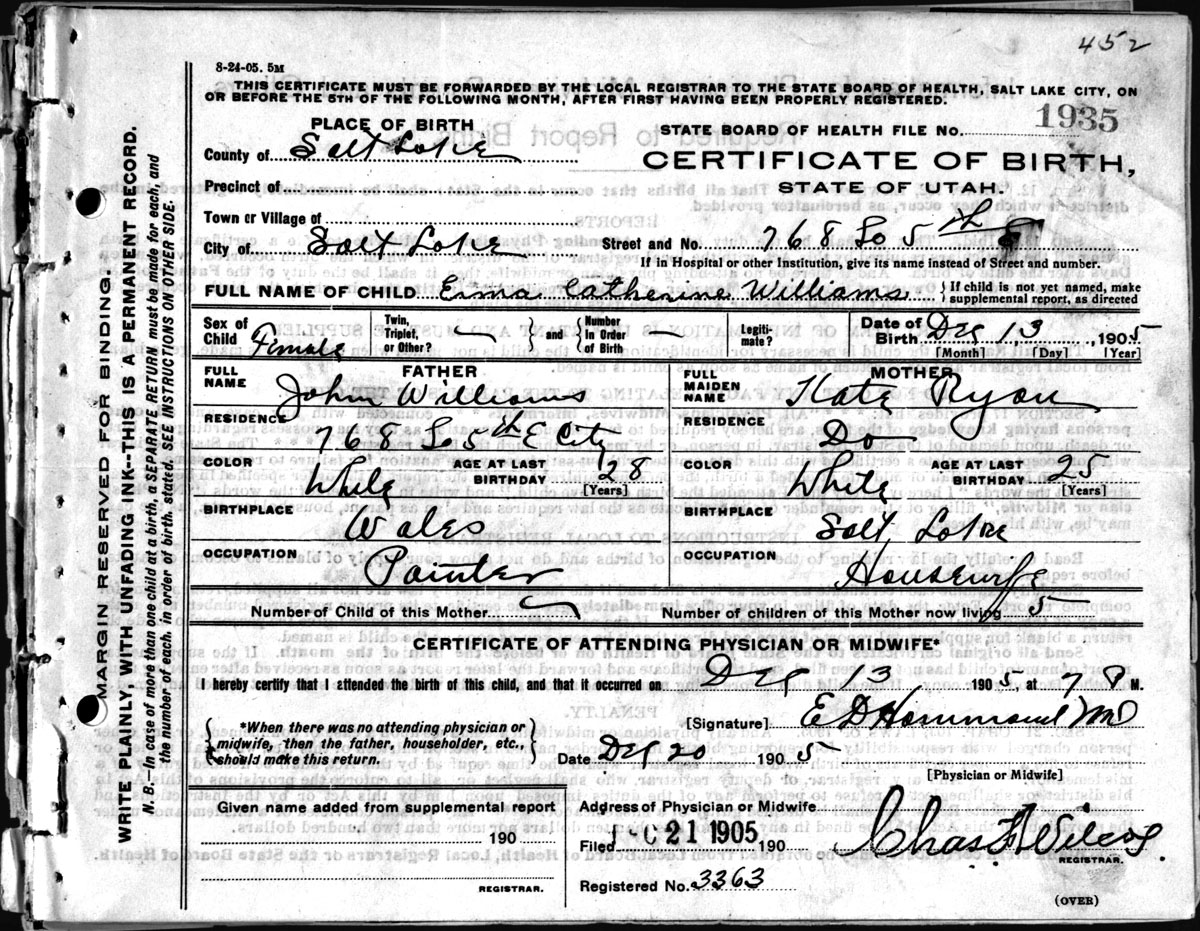 452
8-24-05. 5M
THIS CERTIFICATE MUST BE FORWARDED BY THE LOCAL REGISTRAR TO THE STATE BOARD OF HEALTH, SALT LAKE CITY, ON
OR BEFORE THE 5TH OF THE FOLLOWING MONTH, AFTER FIRST HAVING BEEN PROPERLY REGISTERED.
PLACE OF BIRTH
STATE BOARD OF HEALTH FILE No. 1935
County of Salt Lake
CERTIFICATE OF BIRTH,
Precinct of
STATE OF UTAH.
Town or Village of
City of Salt Lake Street and No. 768 So 5th E
If in Hospital or other Institution, give its name instead of Street and number.
FULL NAME OF CHILD Erma Catherine Williams { If child is not yet named, make
supplemental report, as directed
Sex of Child Female Twin, Triplet, or Other? } and { Number in Order of Birth Legiti-mate? Date of Birth Dec 13, 1905
[Month] [Day] [Year]
FATHER MOTHER
FULL NAME John Williams FULL MAIDEN NAME Kate Ryan
RESIDENCE 768 So 5th E City RESIDENCE Do
COLOR White AGE AT LAST BIRTHDAY 28 [Years] COLOR White AGE AT LAST BIRTHDAY 25 [Years]
BIRTHPLACE Wales BIRTHPLACE Salt Lake
OCCUPATION Painter OCCUPATION Housewife
Number of Child of this Mother Number of children of this Mother now living 5
CERTIFICATE OF ATTENDING PHYSICIAN OR MIDWIFE*
I hereby certify that I attended the birth of this child, and that it occurred on Dec 13 1905, at 7 P M.
*When there was no attending physician or
midwife, then the father, householder, etc.,
should make this return.
[Signature] E D Hammond MD
Date Dec 20 1905
[Physician or Midwife]
Given name added from supplemental report
190
REGISTRAR.
Address of Physician or Midwife
Filed DEC 21 1905 190 Chas F Wilcox
REGISTRAR.
Registered No. 3363
(OVER)
MARGIN RESERVED FOR BINDING.
WRITE PLAINLY, WITH UNFADING INK--THIS IS A PERMANENT RECORD.
N. B.—In case of more than one child at a birth, a SEPARATE RETURN must be made for each, and
the number of each, in order of birth, stated. SEE INSTRUCTIONS ON OTHER SIDE.